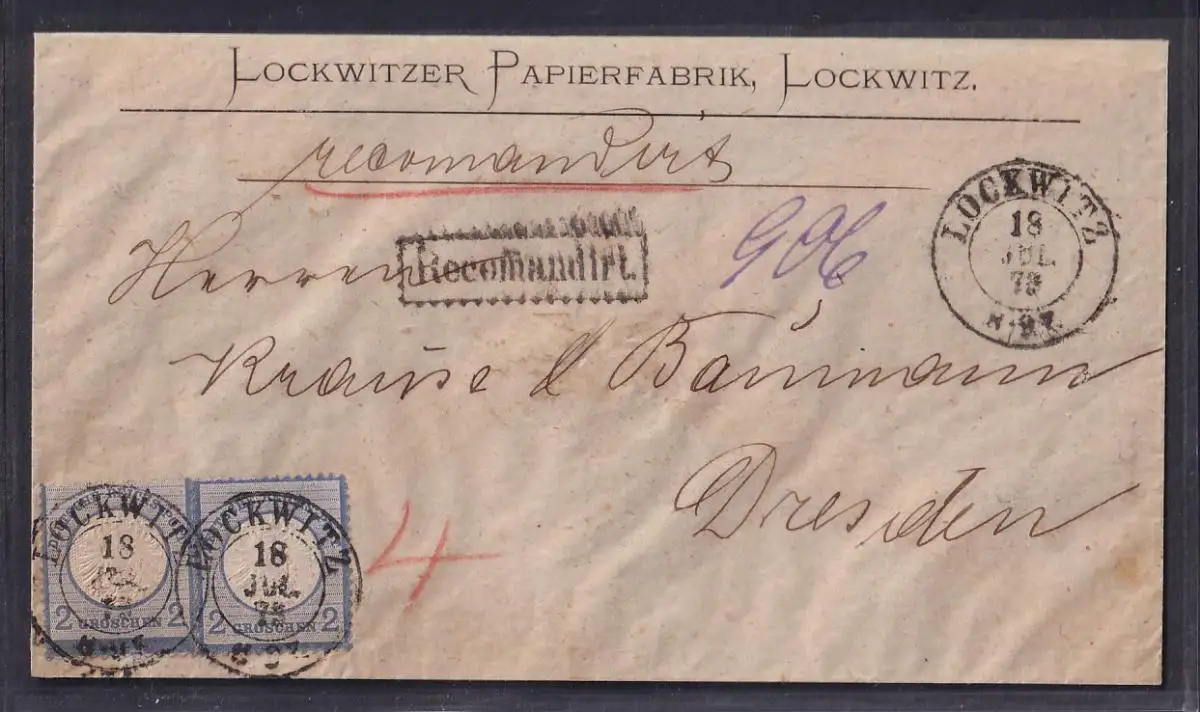 LOCKWITZER PAPIERFABRIK, LOCKWITZ.
recomandirt
Recomandirt.
906
LOCKWITZ
18
JUL.
73
Herren
Krause & Baumann
Dresden
4
LOCKWITZ
18
2 GROSCHEN 2
LOCKWITZ
18
JUL.
2 GROSCHEN 2